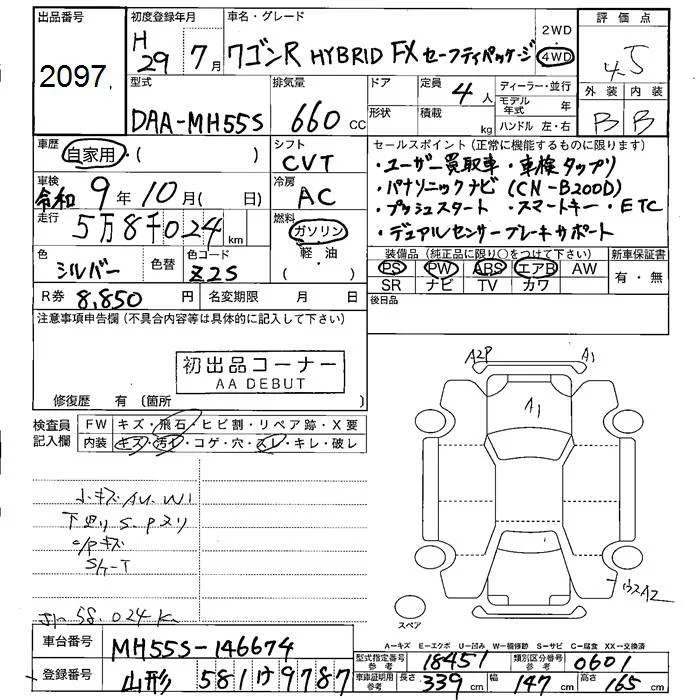 出品番号
2097
初度登録年月
H29年7月
車名・グレード
ワゴンR HYBRID FX セーフティパッケージ
2WD
4WD
評価点
4.5
外装 内装
B B
型式
DAA-MH55S
排気量
660 CC
ドア
形状
定員
4人
積載
kg
ディーラー・並行
モデル年式 年
ハンドル 左・右
車歴
自家用・( )
シフト
CVT
車検
令和9年10月( 日)
冷房
AC
走行
5万8千024 km
燃料
ガソリン
軽・油
( )
色
シルバー
色替
色コード
Z2S
R券 8,850 円
名変期限 月 日
セールスポイント(正常に機能するものに限ります)
・ユーザー買取車 ・車検タップリ
・パナソニックナビ (CN-B200D)
・プッシュスタート ・スマートキー ・ETC
・デュアルセンサーブレーキサポート
装備品(純正品に限り○をつけて下さい)
PS PW ABS エアB AW
SR ナビ TV カワ
新車保証書
有・無
後日品
注意事項申告欄(不具合内容等は具体的に記入して下さい)
初出品コーナー
AA DEBUT
修復歴 有 (箇所 )
検査員記入欄
FW キズ・飛石・ヒビ割・リペア跡・X要
内装 キズ・汚レ・コゲ・穴・スレ・キレ・破レ
小キズ AU. W1
下廻り S. Pヌリ
58.024K
A2P
A1
A1
スペア
A=キズ E=エクボ U=凹み W=補修跡 S=サビ C=腐食 XX=交換済
車台番号 MH55S-146674
登録番号 山形 581 け 9787
型式指定番号 参考 18451
類別区分番号 参考 0601
車庫証明用 参考 長さ 339 cm 幅 147 cm 高さ 165 cm